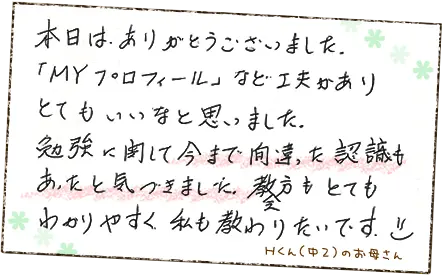 本日は、ありがとうございました。
「MYプロフィール」など工夫があり
とてもいいなと思いました。
勉強に関して今まで間違った認識も
あったと気づきました。教え方もとても
わかりやすく、私も教わりたいです。
Hくん(中2)のお母さん